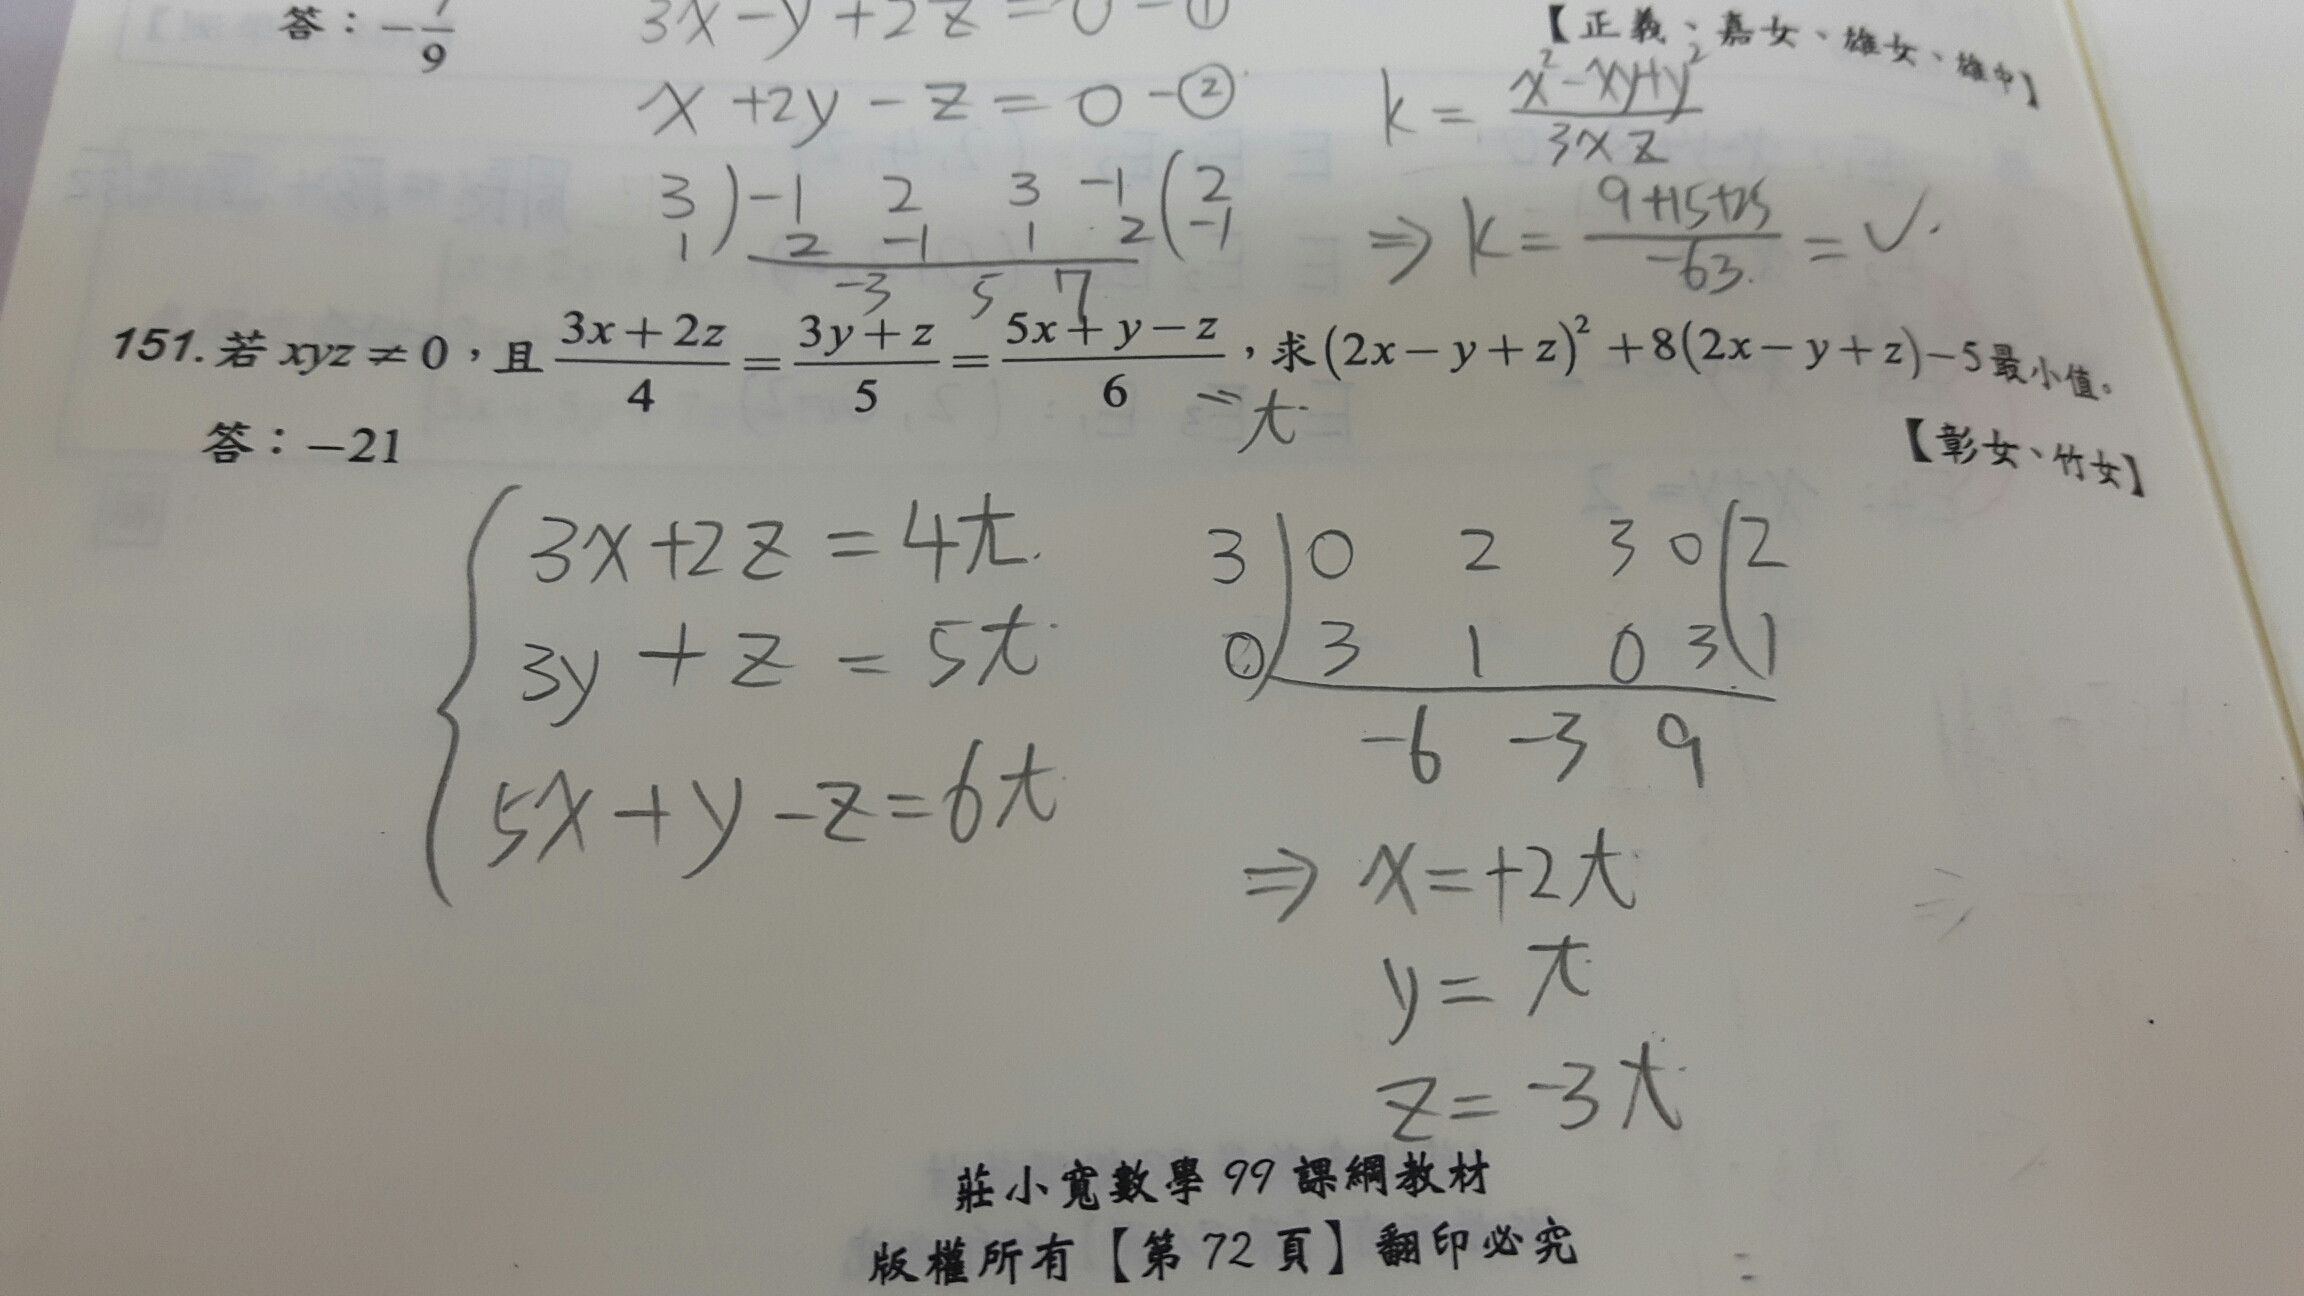 答：-7/9
3x-y+2z=0-①
【正義、嘉女、雄女、雄中】
x+2y-z=0-②
k=(x²-xy+y²)/(3xz)
3)-1 2 3 -1(2
1) 2 -1 1 2(-1
-3 5 7
⇒k=(9+15+25)/(-63)=✓.
151.若xyz≠0，且(3x+2z)/4=(3y+z)/5=(5x+y-z)/6，求(2x-y+z)²+8(2x-y+z)-5最小值。
=t
答：-21
【彰女、竹女】
3x+2z=4t
3y+z=5t
5x+y-z=6t
3)0 2 3 0(2
0)3 1 0 3(1
-6 -3 9
⇒x=+2t
y=t
z=-3t
莊小寬數學99課綱教材
版權所有【第72頁】翻印必究